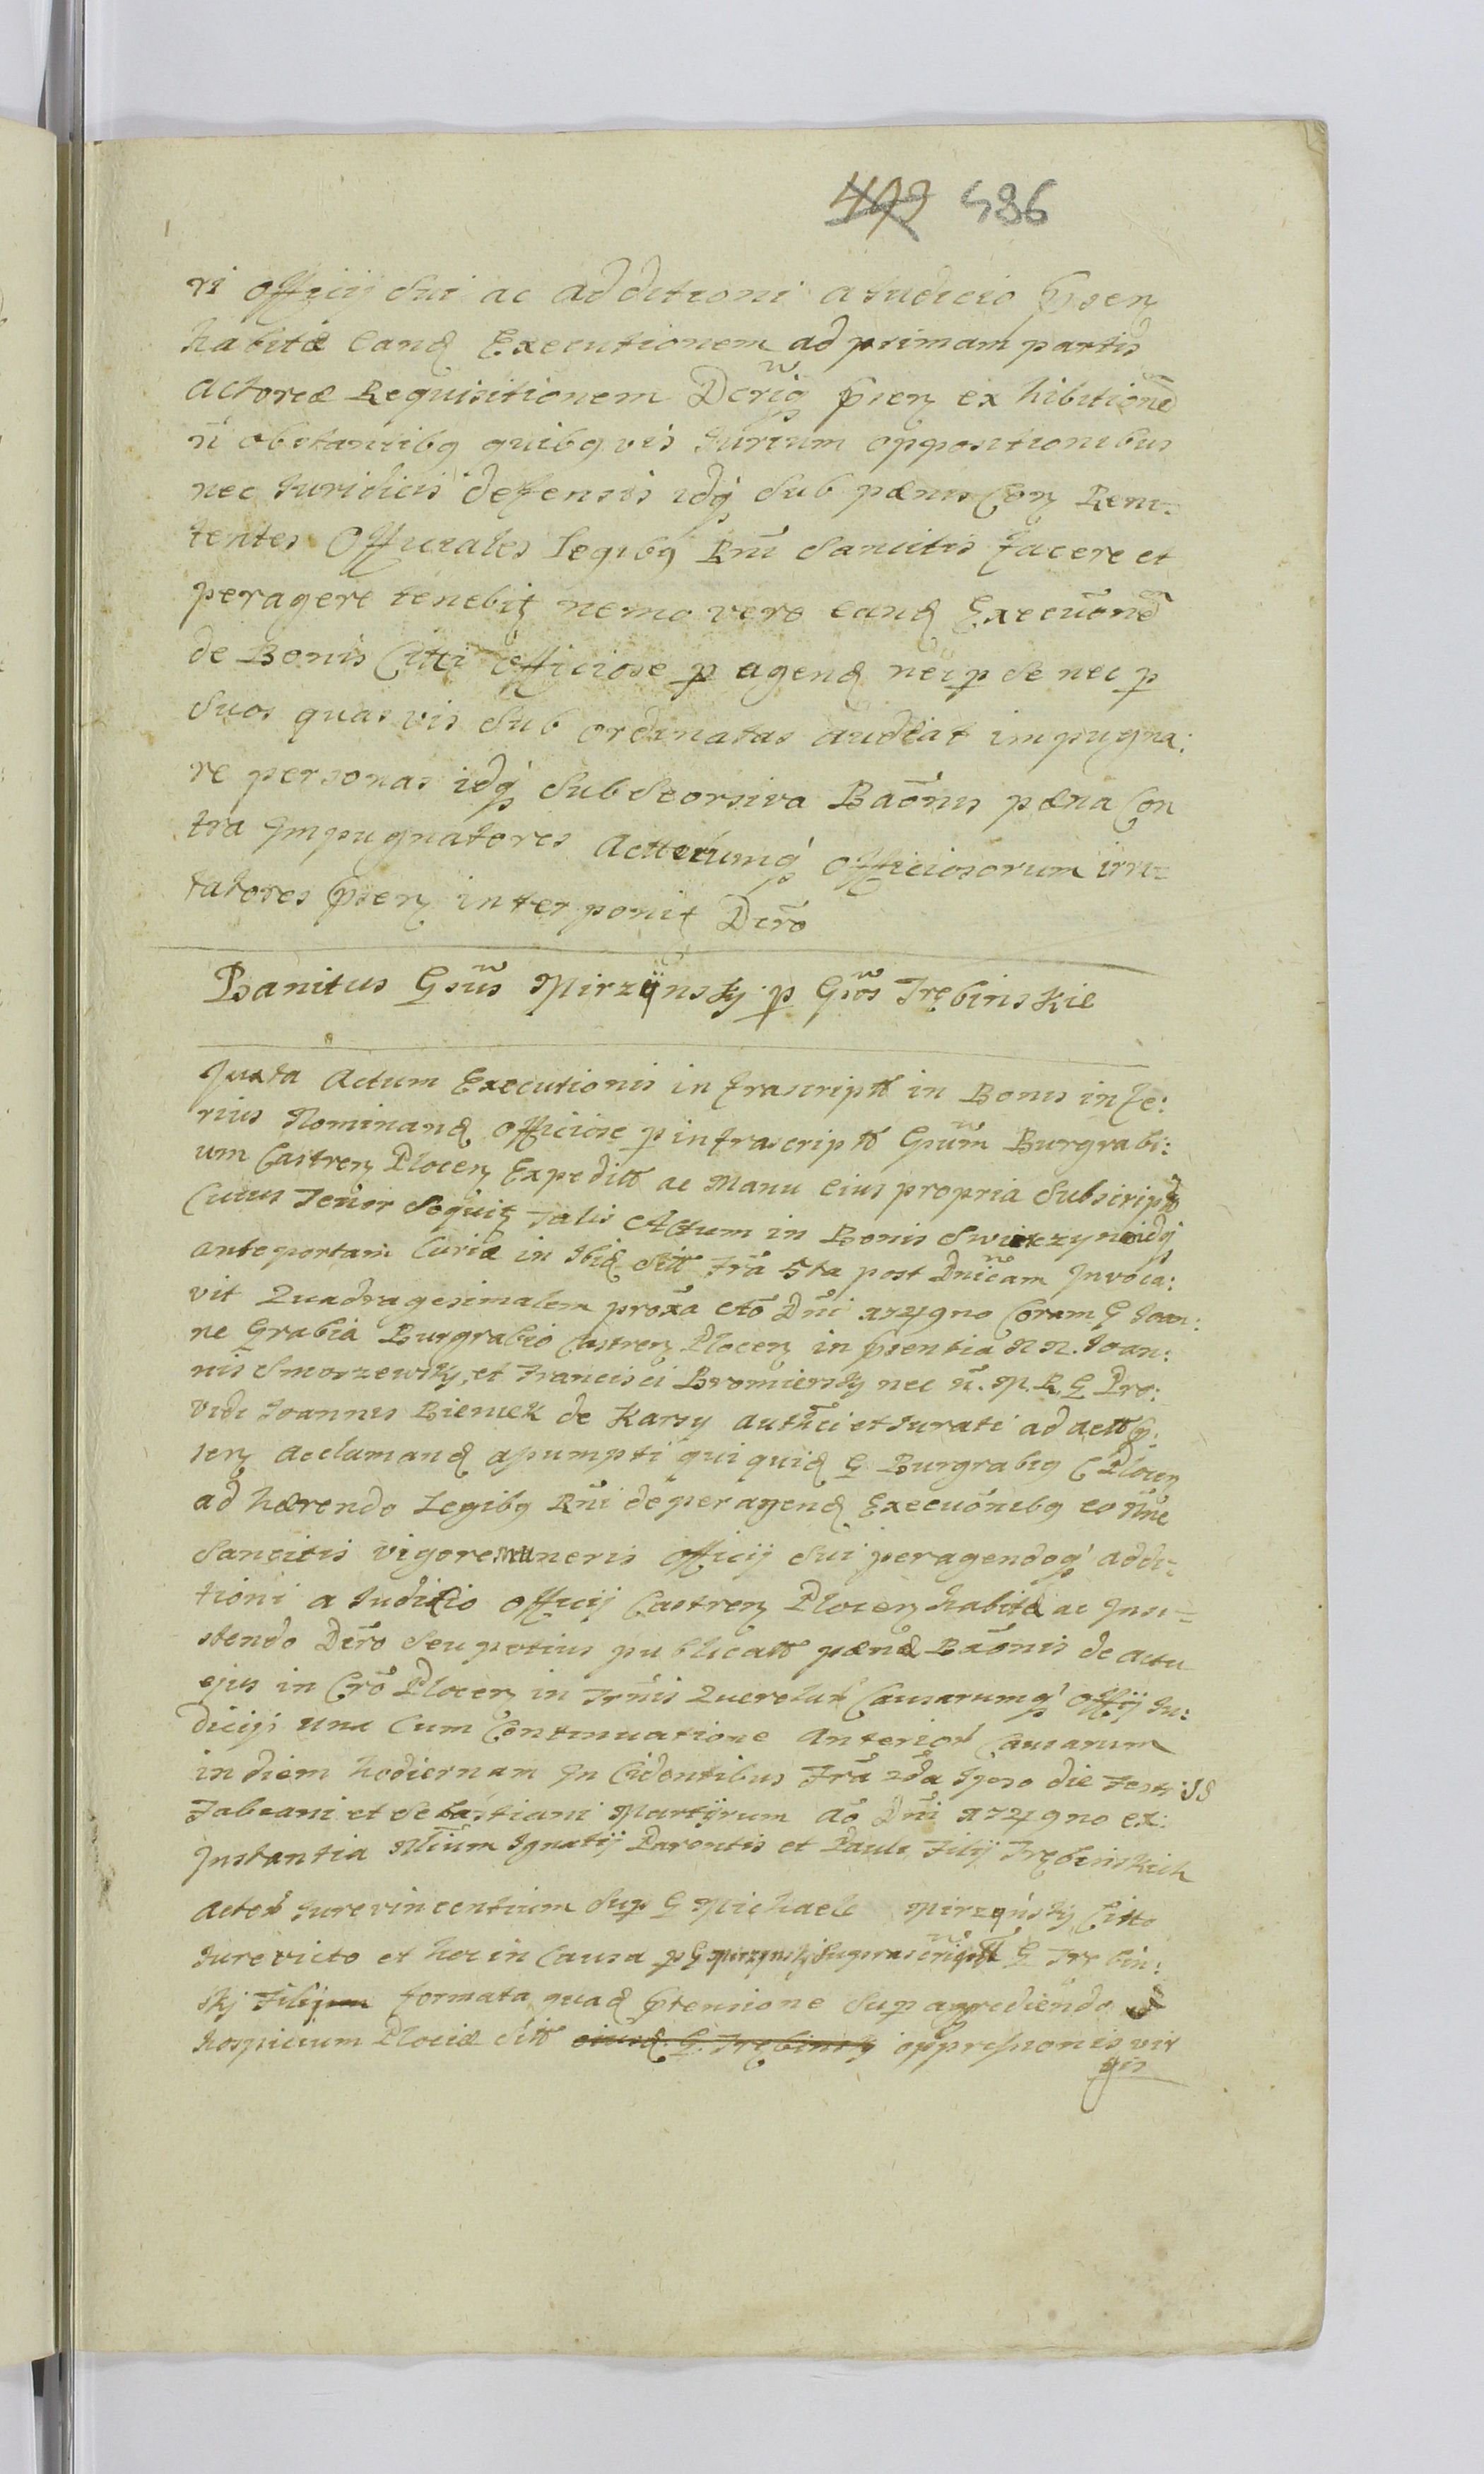 499 486
ri Officij sui ac additioni a Judicio Psen
habitæ eand Executionem ad primam partis
Actoreæ Requisitionem Dcriq psen exhibitione
n obstantibq quibqvis Jurium oppositionibus
nec Juridicis defensis idq sub pænis Con Reni:
tentes Officiales legibq Rni Sancitis facere et
peragere tenebit nemo vero eand Executione
de Bonis Citti officiose p agend nec p se nec p
suos quasvis sub ordinatas audeat impugna:
re personas idq sub seorsiva Baonis pæna Con
tra Impugnatores Acttorumq officiosorum irri-
tatores psen interponit Dcro
Banitus Gsus Mirzÿnsky p Gsos Trębinskie
Juxta Actum Executionis infrascriptt in Bonis infe:
rius Nominand officiose p infrascriptt Gsum Burgrabi:
um Castren Plocen Expeditt ac Manu eius propria subscriptt
Cuius Tenor sequit Talis Actum in Bonis Swierzyn idq
ante portam Curiæ in Ibid sitt Fra 5ta post Dnicam Invoca:
vit Quadragesimalem proxa Ao Dni 1749no Coram G Joan:
ne Grabia Burgrabio Castren Plocen in psentia N N. Joan:
nis Smorzewsky, et Francisci Bromiersky nec n. M. R. G Pro:
vidi Joannis Bieniek de Karsy authci et Jurati ad actt p:
sen acclamand assumpti qui quid G Burgrabiq C Plocen
adhærendo Legibq Rni de peragend Executonibq eo nne
Sancitis vigore Muneris officij sui peragendoq addi-
tioni a Judicio officij Castren Plocen habitæ ac Insi-
stendo Dcro seu potius publicatt pænæ Baonis de actu
ejus in Cro Plocen in Trnis Querelar Causarumq offij Ju:
dicijs una Cum Continuatione Anterior Causarum
in diem hodiernam Incidentibus Fra 2da Ipso die Festi SS
Fabeani et Sebastiani Martÿrum Ao Dni 1749no ex:
Instantia Mlium Ignatij Parentis et Pauli Filij Trębinskich
Actor Jurevincentium sup G Michaele Mirzynsky Citto
Jurevicto et hoc in Causa p G Mirzynsky suprascriptt G Trebin:
skj Filijum formata quad ptensione sup agrediendo
hospicium Plociæ sitt eiusd. G. Trębinsky oppressionis vir
gis